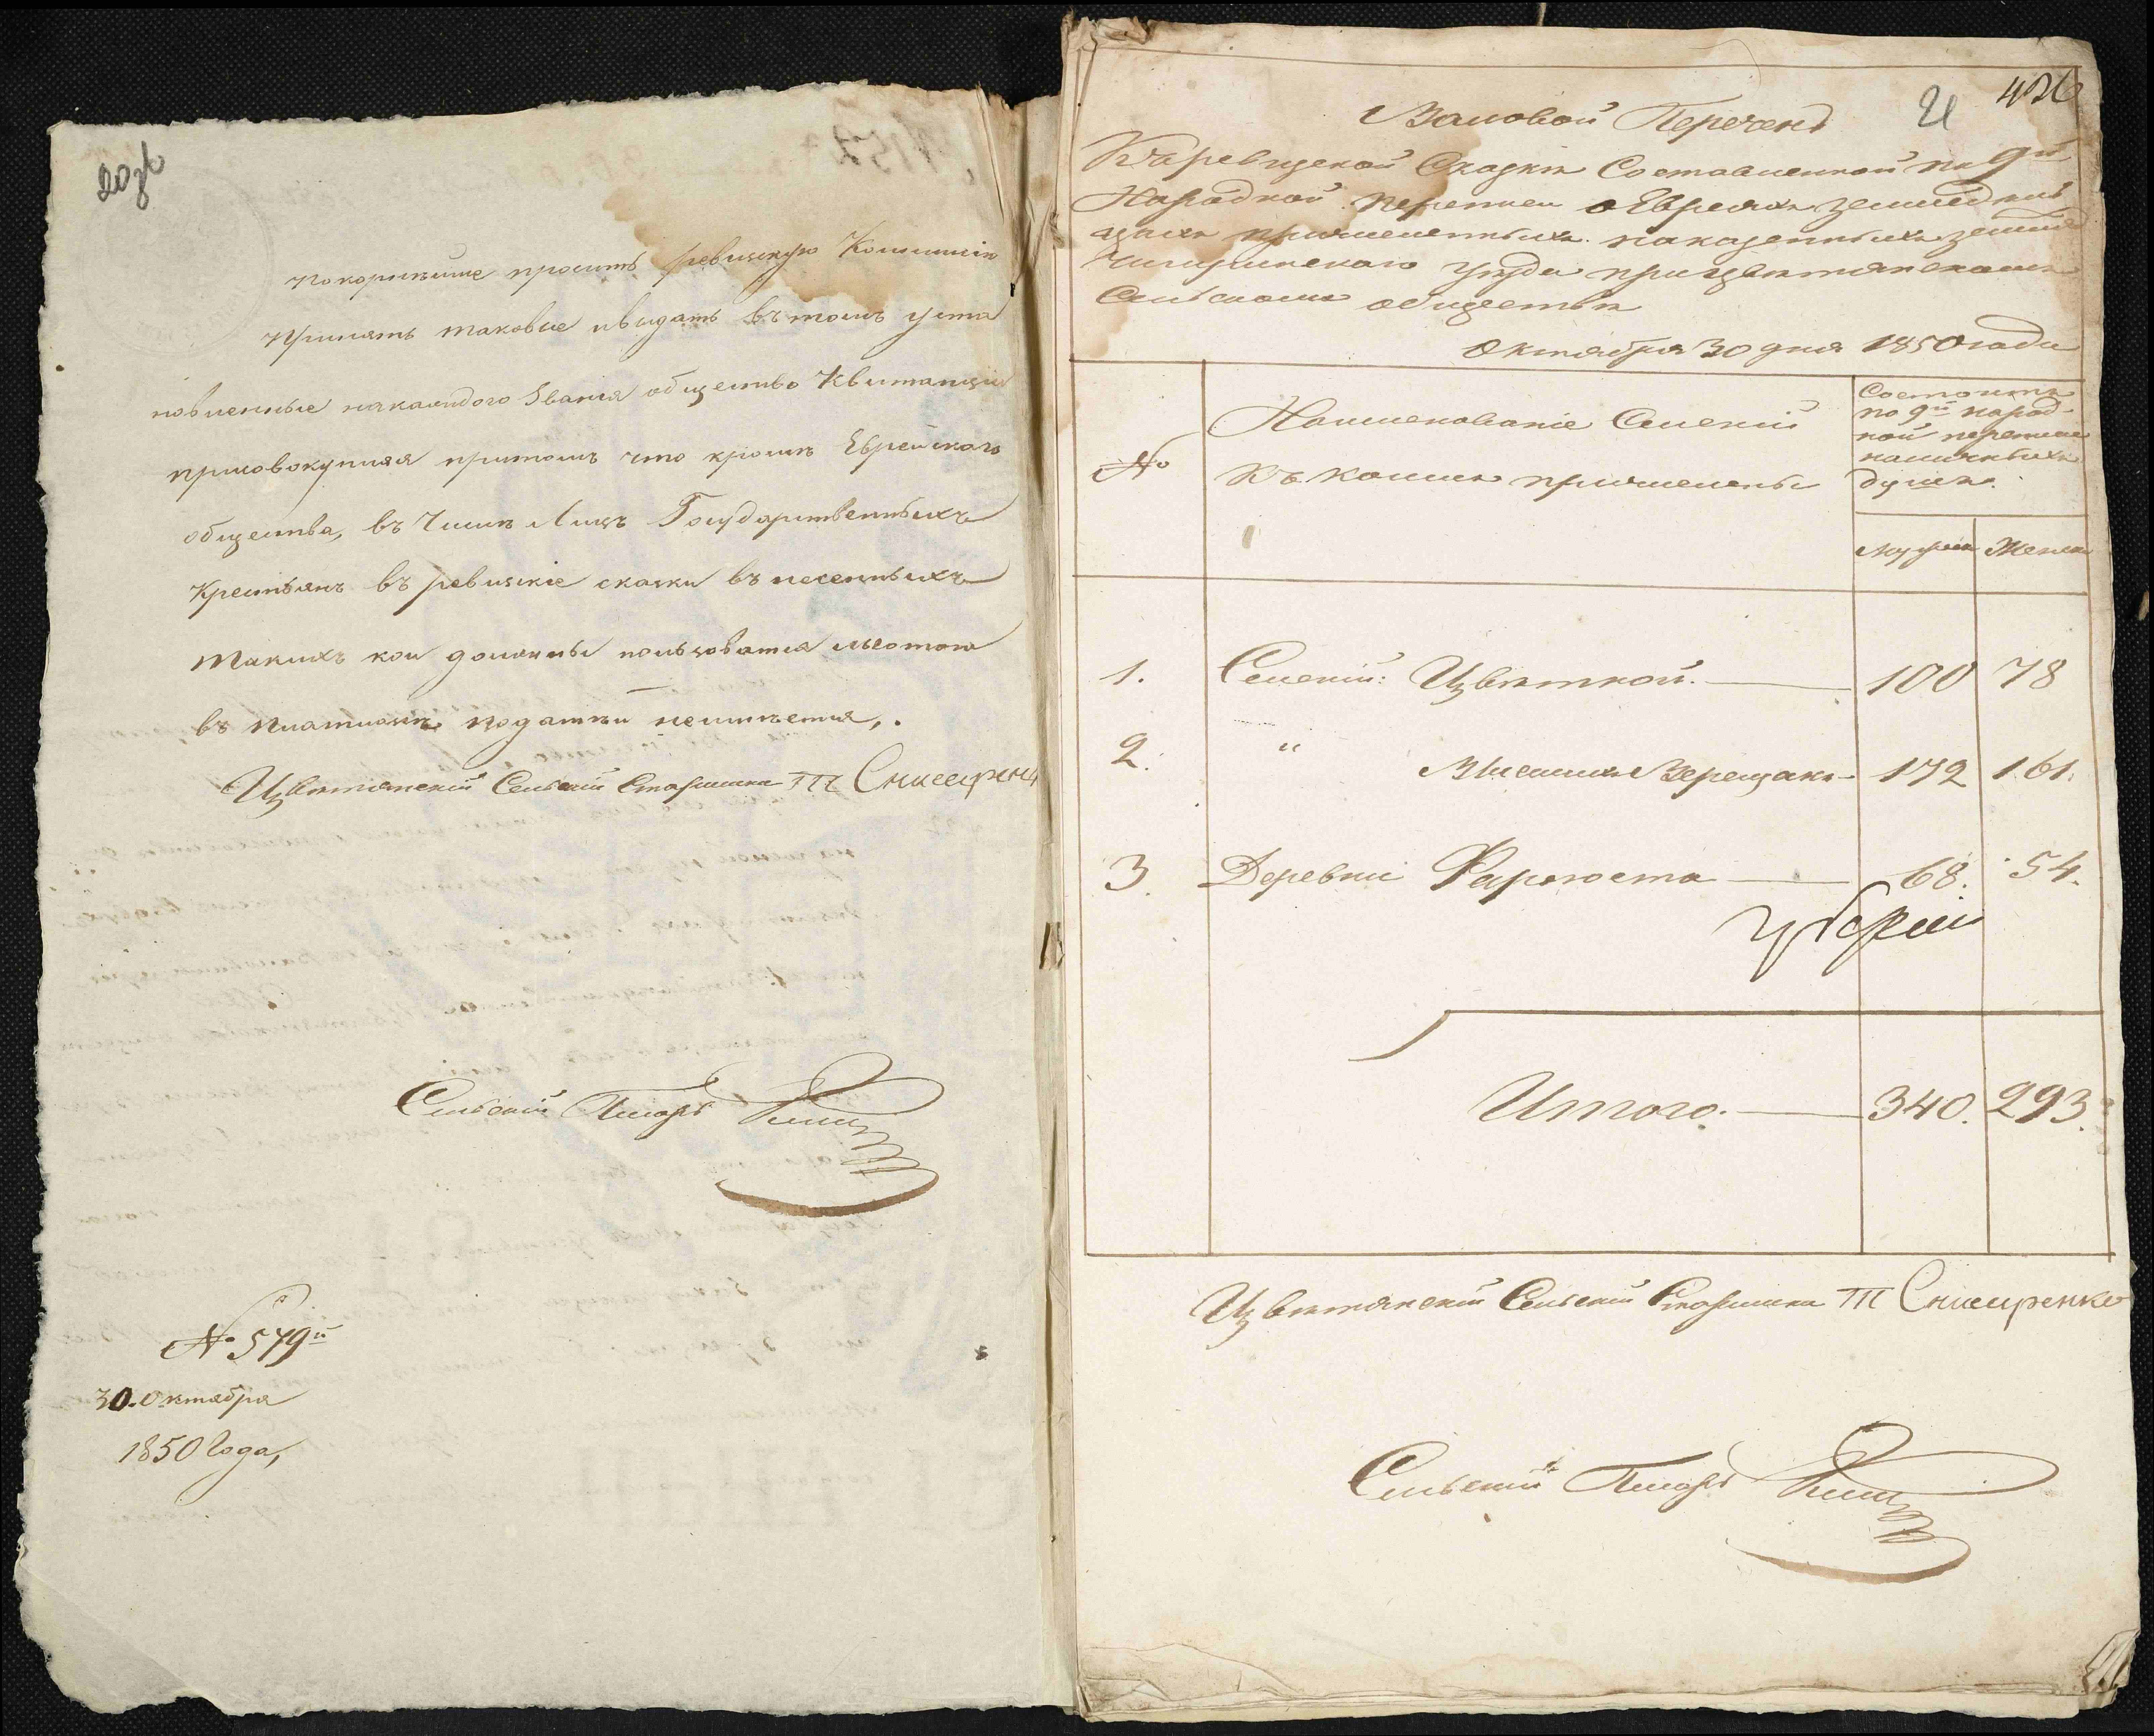 20зв
покорнѣише просить ревизкую Комиссію
принять таковые ивыдать въ томъ уста
новленные накаждого Званія общество Квитанціи
присовокупляя притомъ что кромѣ Еврейскаго
общества, въ Числѣ Лицъ Государственныхъ
крестьянъ въ ревизкіе сказки внесенныхъ
такихъ кои должны пользоватся льготою
въ платежѣ податѣй неимѣется,.
Цвѣтянскій Сельскій Старшина ТП Снисаренко
Сельскій Писарь
№ 579й
30. Октября
1850 Года,
Валовой Перечень
21
426
Къ ревизской Сказкѣ Составленной по 9й
Народной переписи о Евреяхъ земледѣль
цахъ причисленныхъ наказенныхъ земля
Чигиринскаго уѣзда прицвѣтянскомъ
Сельскомъ обществѣ
Октября 30 дня 1850 года
№
Наименованіе Селеній
Къ коимъ причислены
Состоитъ
по 9й народ
ной переписи
наличныхъ
душъ.
Мужеск
Женск
1. Селеній: Цвѣтной. 100 78
2. " Высшихъ Верещакъ 172 161.
3. Деревни 68. 54.
Итого. 340. 293.
Цвѣтянскій Сельскій Старшина ТП Снисаренко
Сельскій Писарь